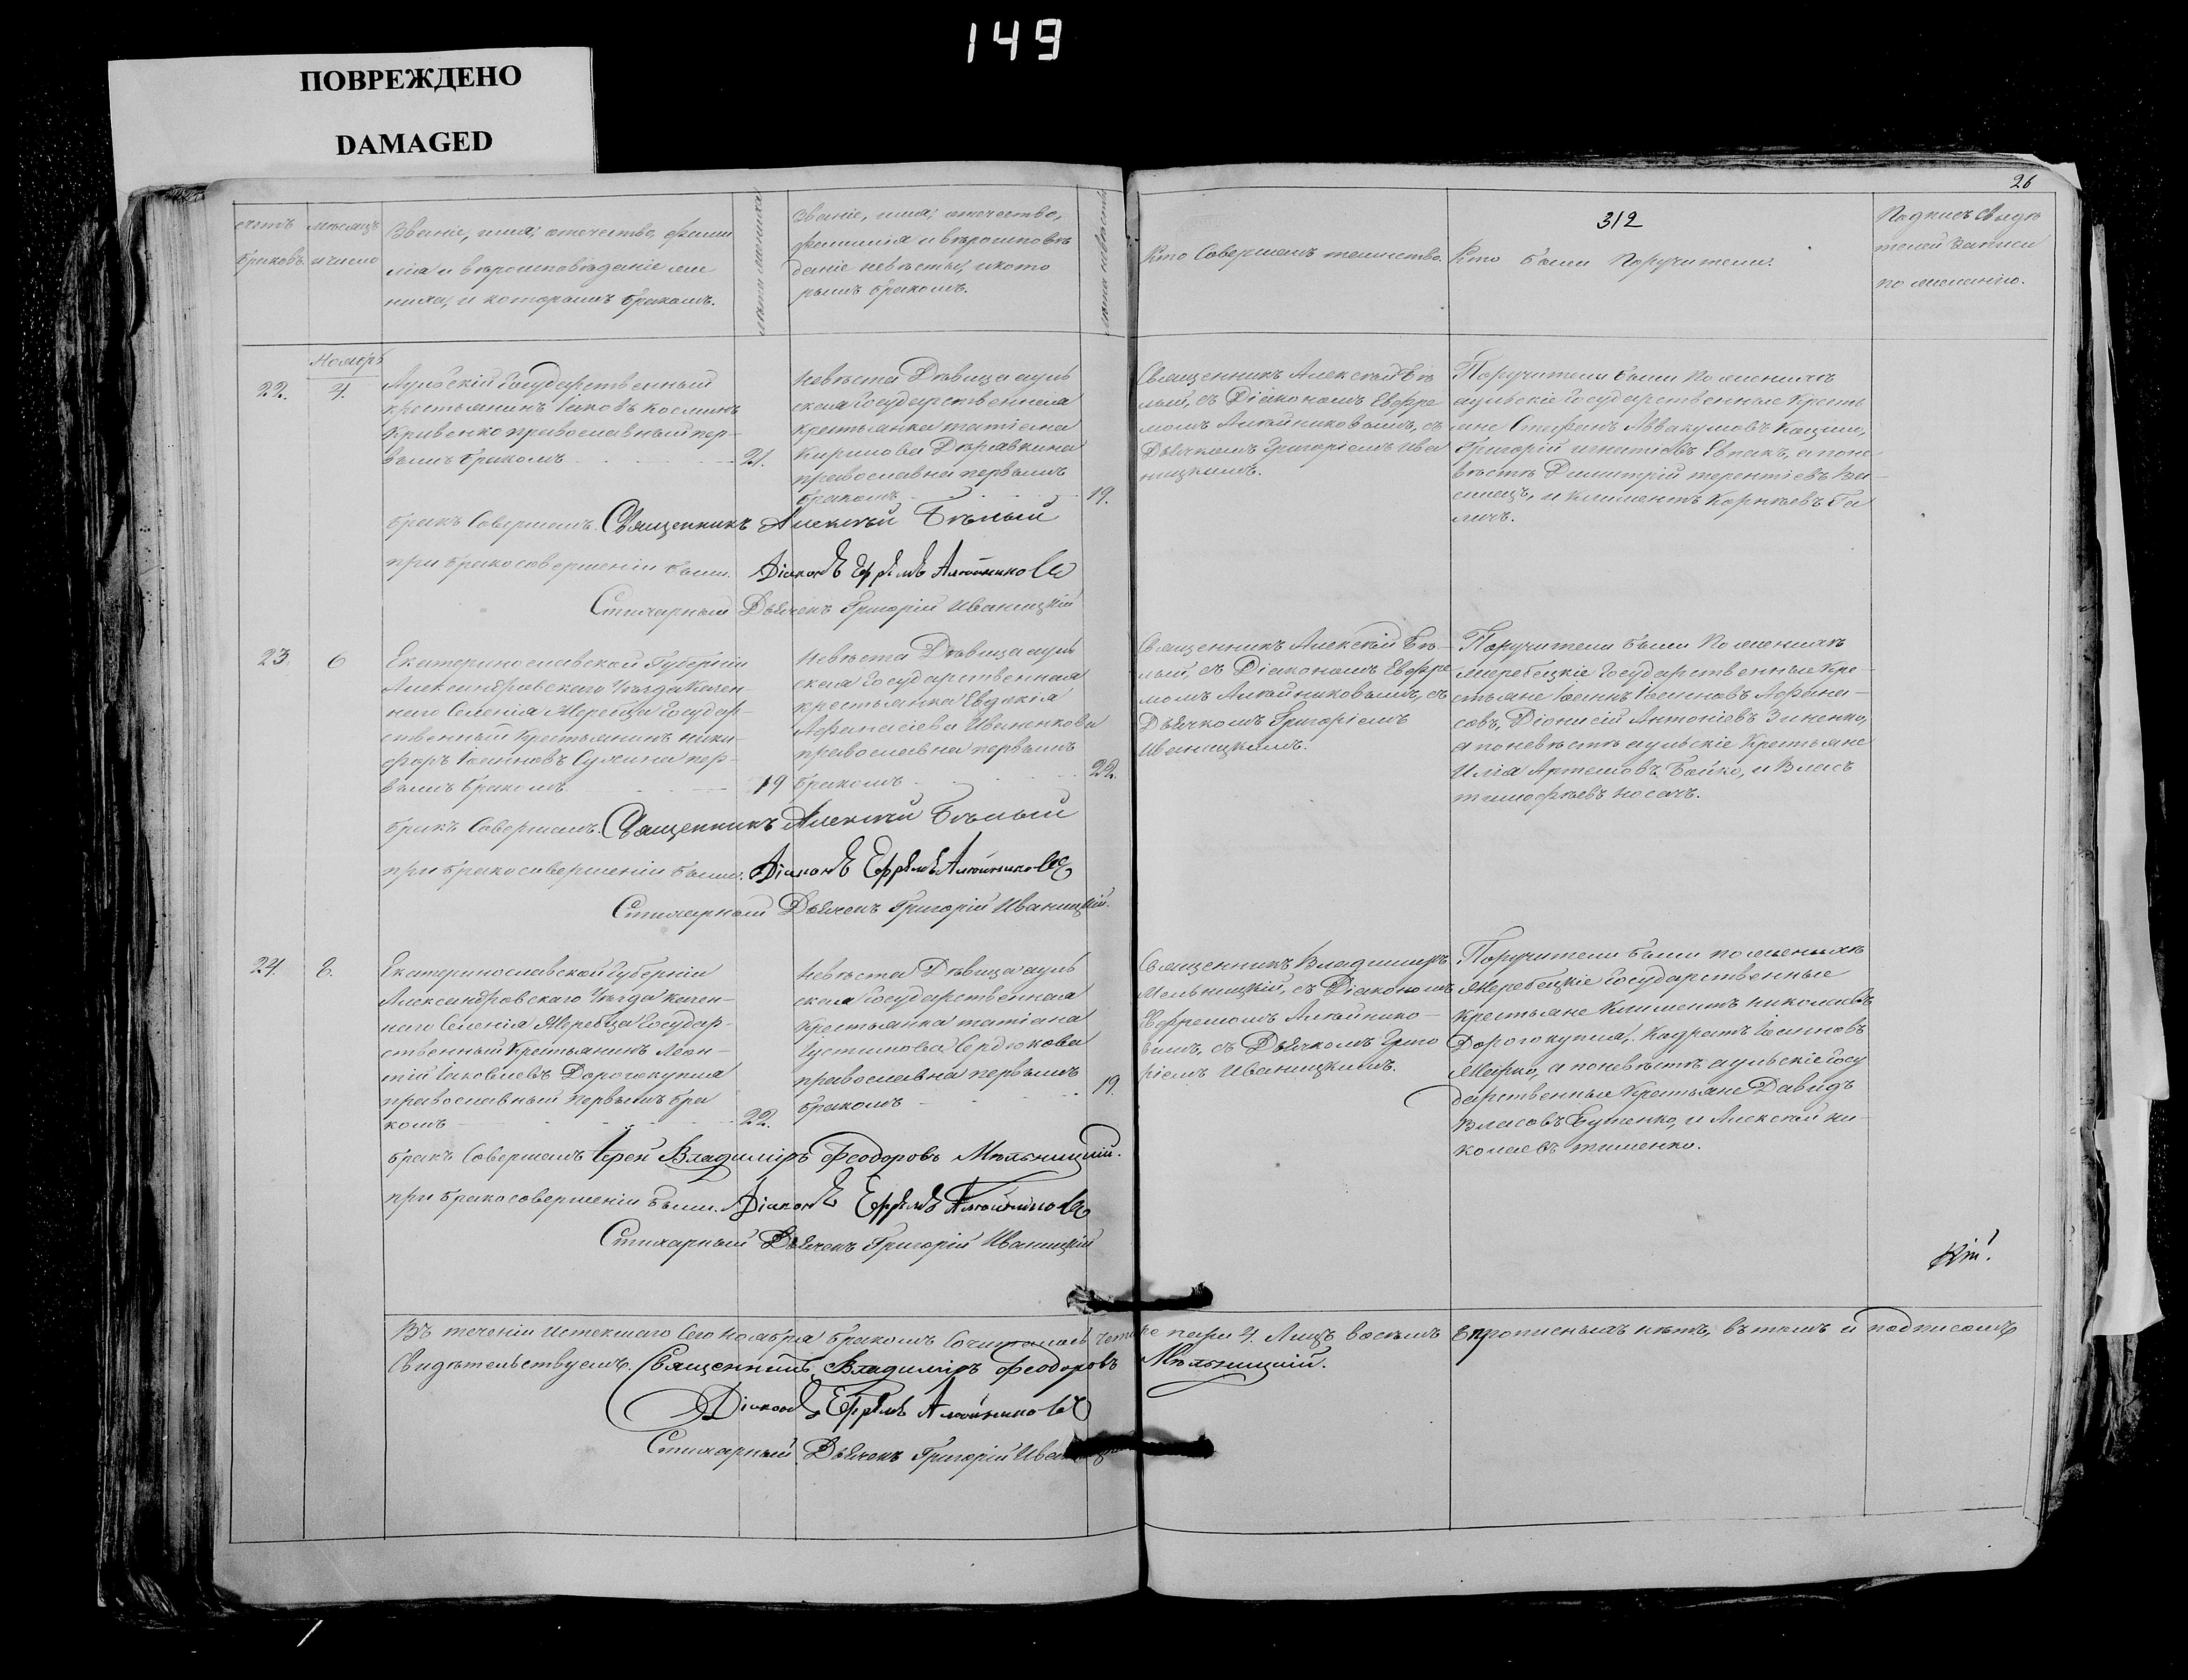 149
ПОВРЕЖДЕНО
DAMAGED
26
312
счетъ браковъ.
мѣсяцъ и число
Званіе, имя, отечество, фами
лія и вѣроисповѣданіе же
ниха, и которымъ бракомъ.
лѣта жениха
Званіе, имя, отечество,
фамилія и вѣроисповѣ
даніе невѣсты, и кото
рымъ бракомъ.
лѣта невѣсты
Кто Совершалъ таинство.
Кто были Поручители.
Подписъ Свидѣ
телей Записи
по желанію.
Ноябрь
22.
4.
Аульскій Государственный
крестьянинъ Іаковъ Косминъ
Кривенко православный пер-
вымъ бракомъ
21.
Невѣста Дѣвица ауль
ская Государственная
крестьянка татіана
Кирилова
православна первымъ
бракомъ
19.
Священникъ Алексѣй Бѣ
лый, съ Діакономъ Евфре
момъ Алтайниковымъ, съ
Дьячкомъ Григоріемъ Ива
ницкимъ.
Поручители были По женихѣ
аульскіе Государственные Кресть
яне Стефанъ Аввакумовъ Кацим,
Григорій игнатіевъ Евпакъ, а поне
вѣстѣ Димитрій терентіевъ
и климентъ Корнѣевъ Га
личъ.
бракъ Совершалъ. Священникъ Алексѣй Бѣлый
при бракосовершеніи были. Діаконъ Ефремъ Алтайниковъ
Стихарный Дьячекъ Григорій Иваницкій
23.
6
Екатеринославской Губерніи
Александровскаго Уѣзда Казен-
наго Селенія Жеребца Государ-
ственный Крестьянинъ ники-
форъ Іоанновъ Сулима пер-
вымъ бракомъ
19
Невѣста Дѣвица ауль
ская Государственная
крестьянка Евдокія
Афанасіева Иваненкова
православна первымъ
бракомъ
22.
Священникъ Алексѣй Бѣ-
лый, съ Діакономъ Евфре
момъ Алтайниковымъ, съ
Дьячкомъ Григоріемъ
Иваницкимъ.
Поручители были По женихѣ
жеребецкіе Государственные Кре-
стьяне Іоаннъ Іоанновъ Афана-
совъ, Діонисій Антоніевъ Зиненко,
а поневѣстѣ аульскіе Крестьяне
Илія Артемовъ Бойко, и Власъ
тимофѣевъ Носачъ.
бракъ Совершалъ. Священникъ Алексѣй Бѣлый
при бракосовершеніи были. Діаконъ Ефремъ Алтайниковъ
Стихарный Дьячекъ Григорій Иваницкій.
24.
8.
Екатеринославской Губерніи
Александровскаго Уѣзда казен-
наго Селенія Жеребца Государ-
ственный Крестьянинъ Леон-
тій Іаковлевъ Дорогокупля
православный Первымъ бра
комъ
22.
Невѣста Дѣвица ауль
ская Государственная
Крестьянка татіана
Іустинова Сердюкова
православна первымъ
бракомъ
19.
Священникъ Владимиръ
Мельницкій, съ Діакономъ
Евфремомъ Алтайнико-
вымъ, съ Дьячкомъ Григо
ріемъ Иваницкимъ.
Поручители были по женихѣ
Жеребецкіе Государственные
крестьяне Климентъ николаевъ
Дорогокупля, Кодратъ Іоанновъ
а поневѣстѣ аульскіе Госу
дарственные Крестьяне Давидъ
Власовъ Бутенко, и Алексѣй ни-
колаевъ тименко.
бракъ Совершалъ Іерей Владиміръ Феодоровъ Мельницкій.
при бракосовершеніи были. Діаконъ Ефремъ Алтайниковъ
Стихарный Дьячекъ Григорій Иваницкій
Въ теченіи истекшаго Сего Ноября бракомъ Сочеталось четыре пары 4. Лицъ восемъ пропискныхъ нѣтъ, въ чемъ и подписомъ
Свидѣтельствуемъ. Священникъ Владиміръ Феодоровъ Мельницкій.
Діаконъ Ефремъ Алтайниковъ
Стихарный Дьячекъ Григорій